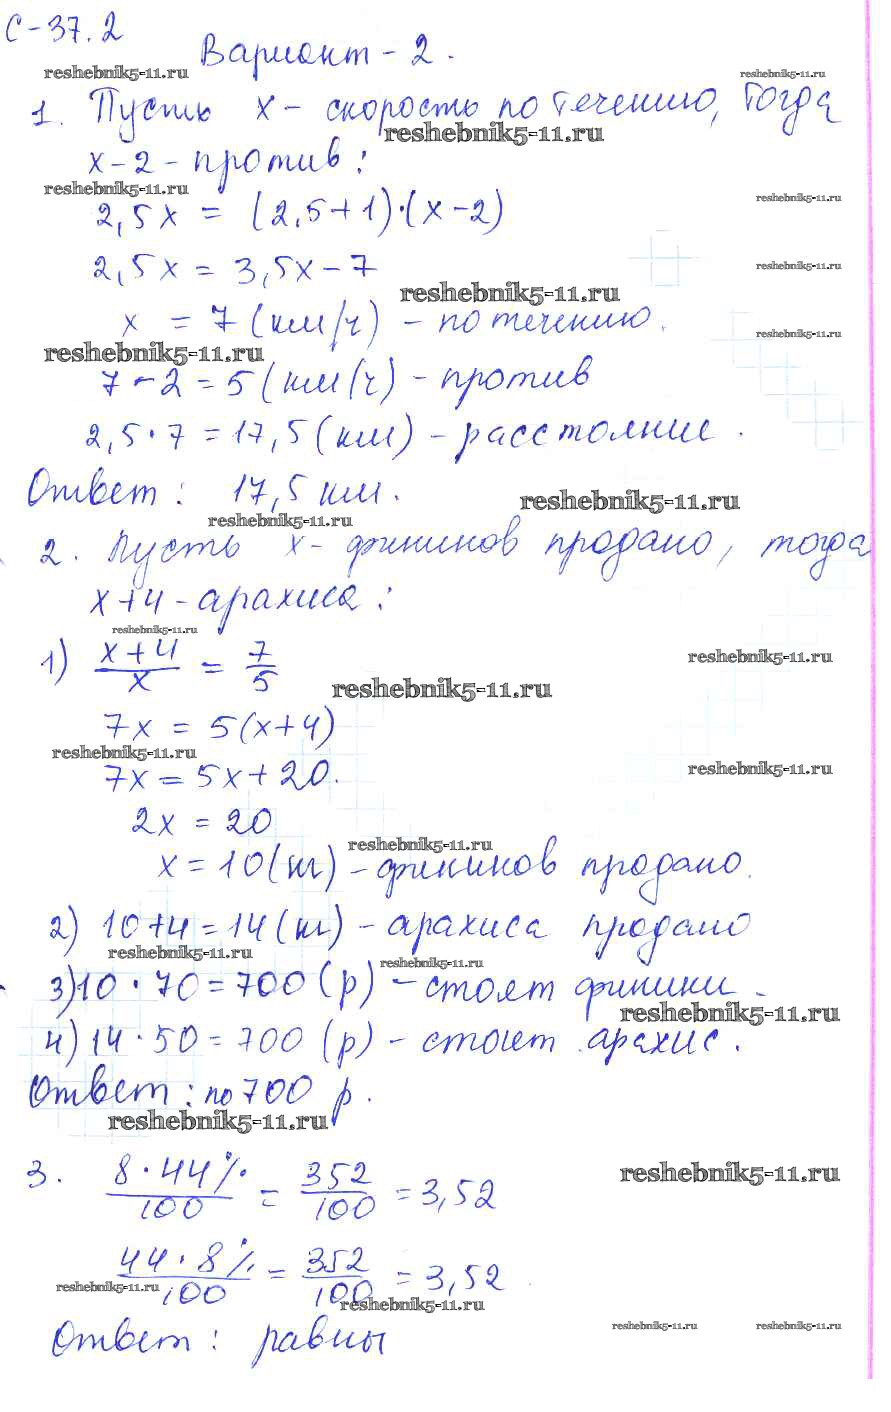 С-37.2
Вариант-2.
reshebnik5-11.ru reshebnik5-11.ru
1. Пусть x - скорость по течению, тогда
reshebnik5-11.ru
x-2 - против:
reshebnik5-11.ru reshebnik5-11.ru
2,5x = (2,5+1)·(x-2)
2,5x = 3,5x-7 reshebnik5-11.ru
reshebnik5-11.ru
x = 7 (км/ч) - по течению.
reshebnik5-11.ru reshebnik5-11.ru
7-2 = 5 (км/ч) - против
2,5·7 = 17,5 (км) - расстояние.
Ответ: 17,5 км. reshebnik5-11.ru
reshebnik5-11.ru
2. Пусть x - фиников продано, тогда
x+4 - арахиса:
reshebnik5-11.ru
1) (x+4)/x = 7/5 reshebnik5-11.ru
reshebnik5-11.ru
7x = 5(x+4)
reshebnik5-11.ru
7x = 5x+20. reshebnik5-11.ru
2x = 20
reshebnik5-11.ru
x = 10 (кг) - фиников продано.
2) 10+4 = 14 (кг) - арахиса продано
reshebnik5-11.ru reshebnik5-11.ru
3) 10·70 = 700 (р) - стоят финики.
reshebnik5-11.ru
4) 14·50 = 700 (р) - стоит арахис.
Ответ: по 700 р.
reshebnik5-11.ru
3. 8·44%/100 = 352/100 = 3,52 reshebnik5-11.ru
44·8%/100 = 352/100 = 3,52
reshebnik5-11.ru reshebnik5-11.ru
Ответ: равны reshebnik5-11.ru reshebnik5-11.ru